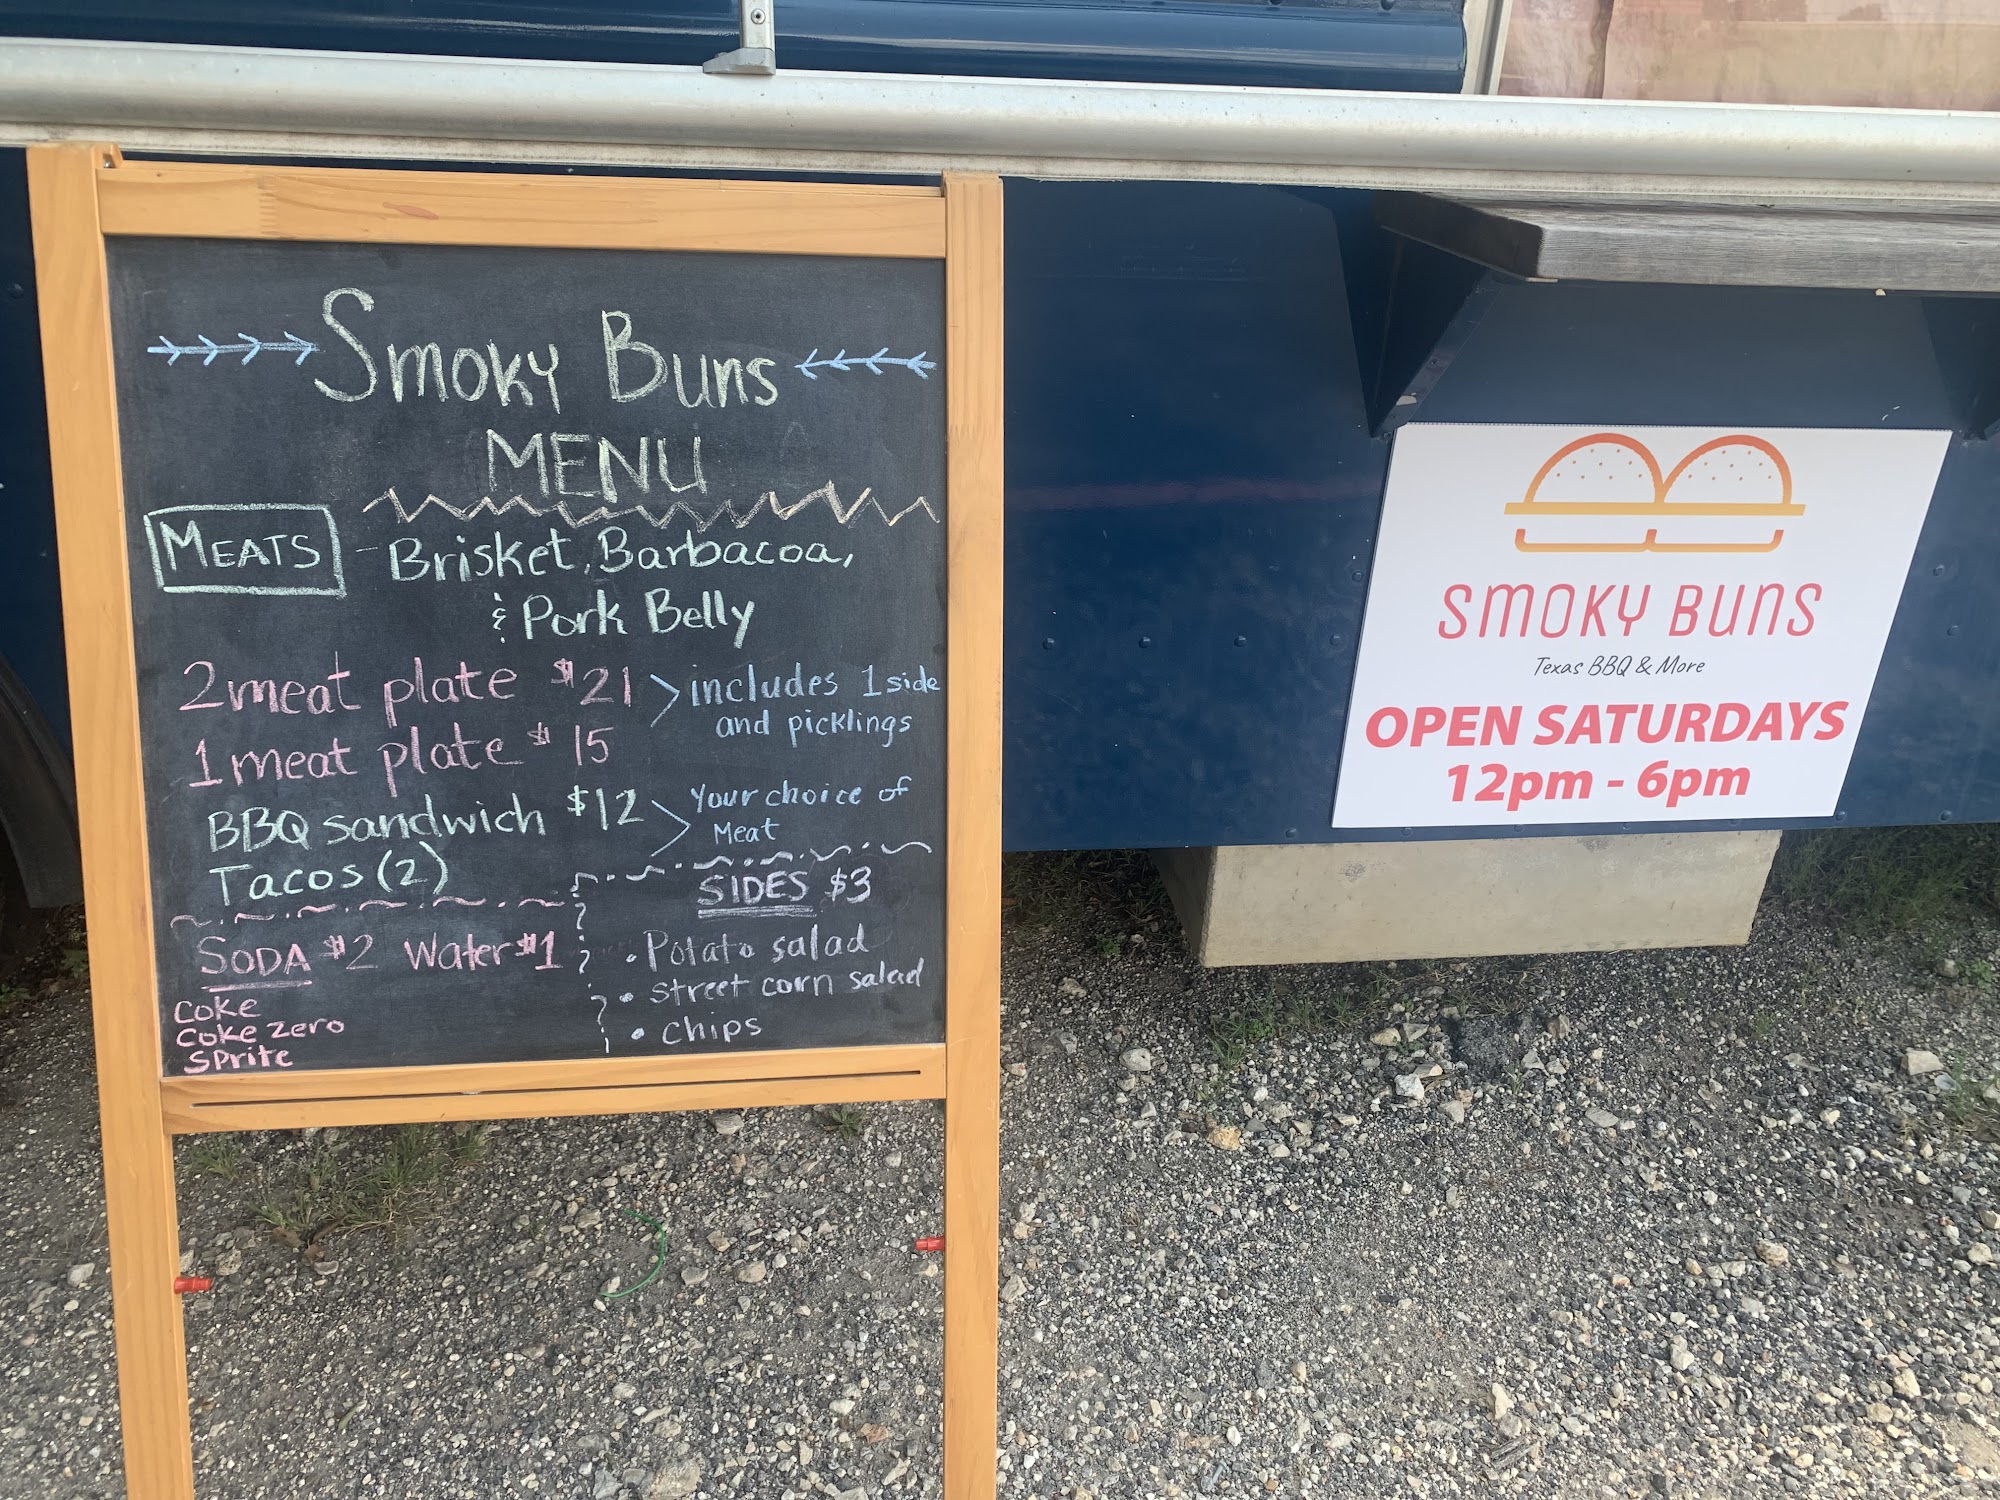 Smoky Buns
MENU
MEATS - Brisket, Barbacoa,
& Pork Belly
2 meat plate $21 > includes 1 side
and picklings
1 meat plate $15
BBQ sandwich $12 > Your choice of
Meat
Tacos (2)
SIDES $3
• Potato salad
• street corn salad
• chips
SODA $2 Water $1
COKE
COKE zero
Sprite
SMOKY BUNS
Texas BBQ & More
OPEN SATURDAYS
12pm - 6pm